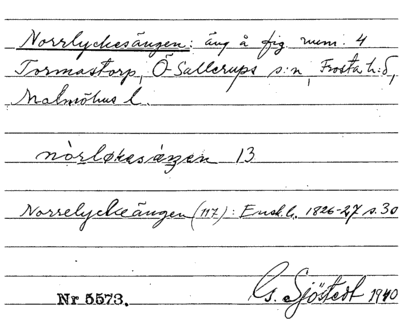 Norrlyckesängen: äng å fig. num. 4
Tormastorp, Ö. Sallerups s:n, Frosta h:d,
Malmöhus l.
nòrløkesæŋen 13
Norrelyckeängen (117): Ensk.l. 1826-27 s.30
Nr 5573. G. Sjöstedt 1940